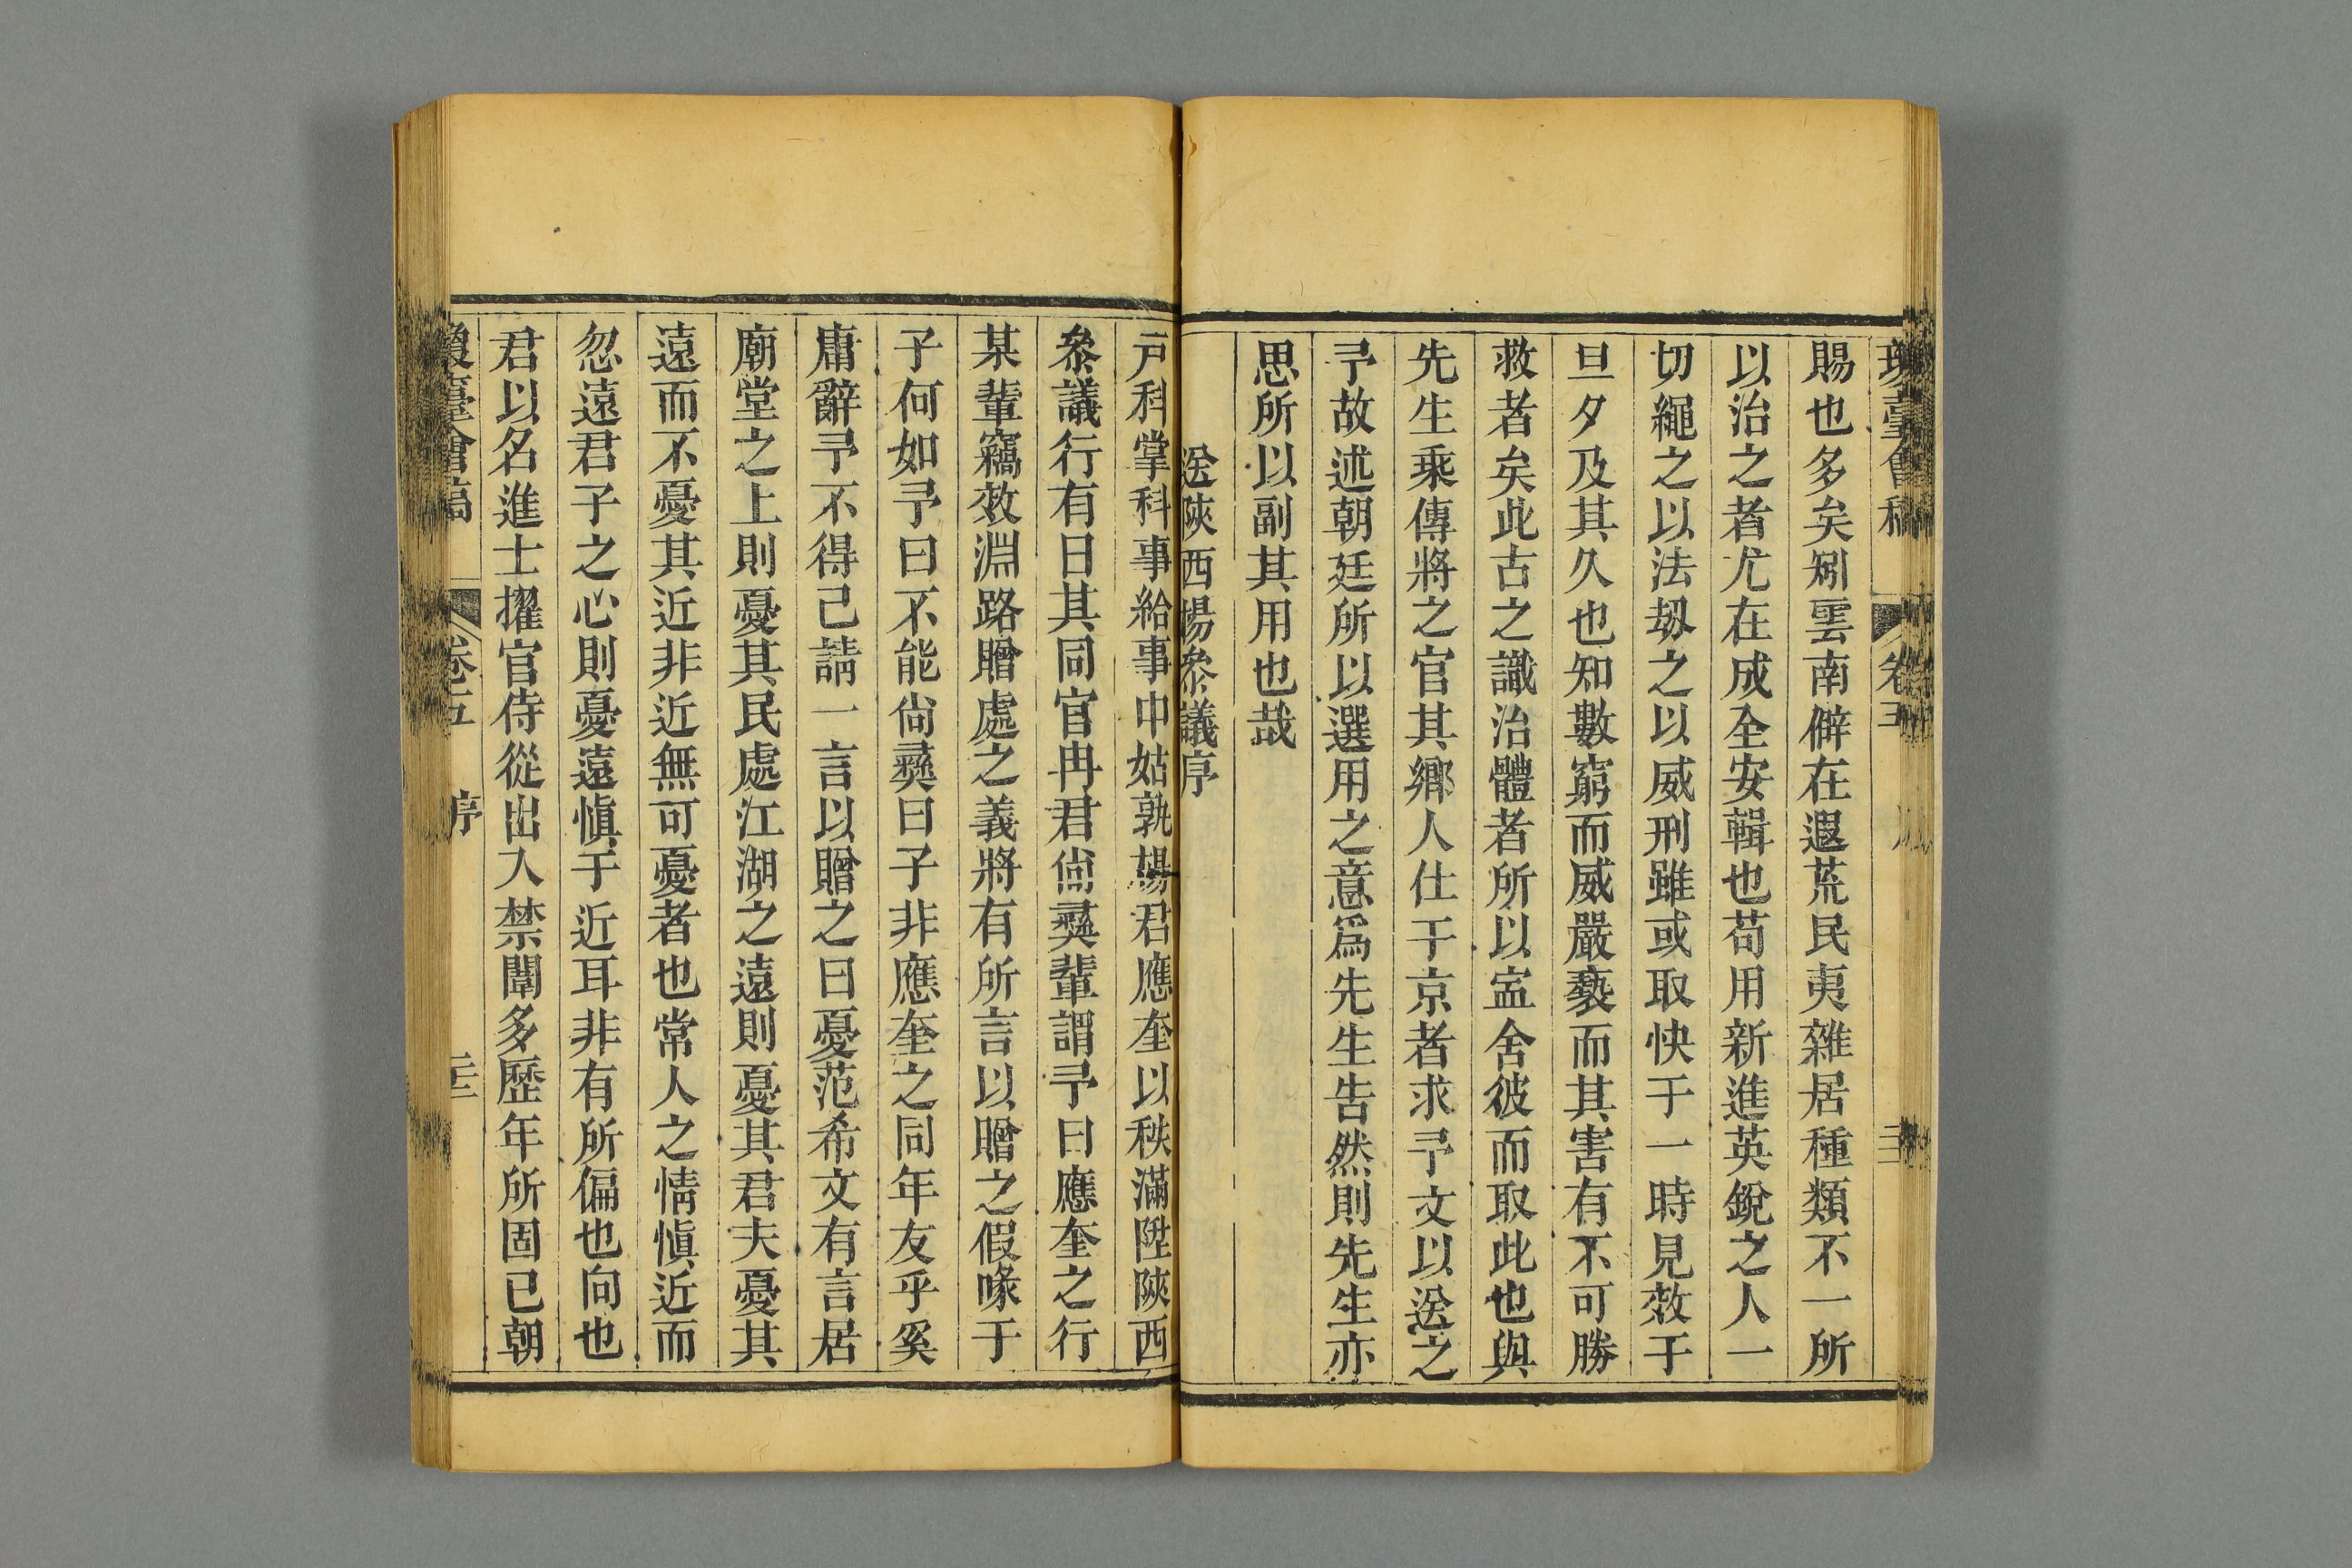 瓊臺會稿 卷五
賜也多矣矧雲南僻在遐荒民夷雜居種類不一所
以治之者尤在成全安輯也苟用新進英銳之人一
切繩之以法刼之以威刑雖或取快于一時見效于
旦夕及其久也知數窮而威嚴褻而其害有不可勝
救者矣此古之識治體者所以寍舍彼而取此也與
先生乘傳將之官其鄉人仕于京者求予文以送之
予故述朝廷所以選用之意爲先生告然則先生亦
思所以副其用也哉
送陝西楊叅議序
戸科掌科事給事中姑孰楊君應奎以秩滿陞陝西
叅議行有日其同官冉君尙彞輩謂予曰應奎之行
某輩竊效淵路贈處之義將有所言以贈之假喙于
子何如予曰不能尙彞曰子非應奎之同年友乎奚
庸辭予不得已請一言以贈之曰憂范希文有言居
廟堂之上則憂其民處江湖之遠則憂其君夫憂其
遠而不憂其近非近無可憂者也常人之情愼近而
忽遠君子之心則憂遠愼于近耳非有所偏也向也
君以名進士擢官侍從出入禁闥多歷年所固已朝
瓊臺會稿 卷五 序 三十三